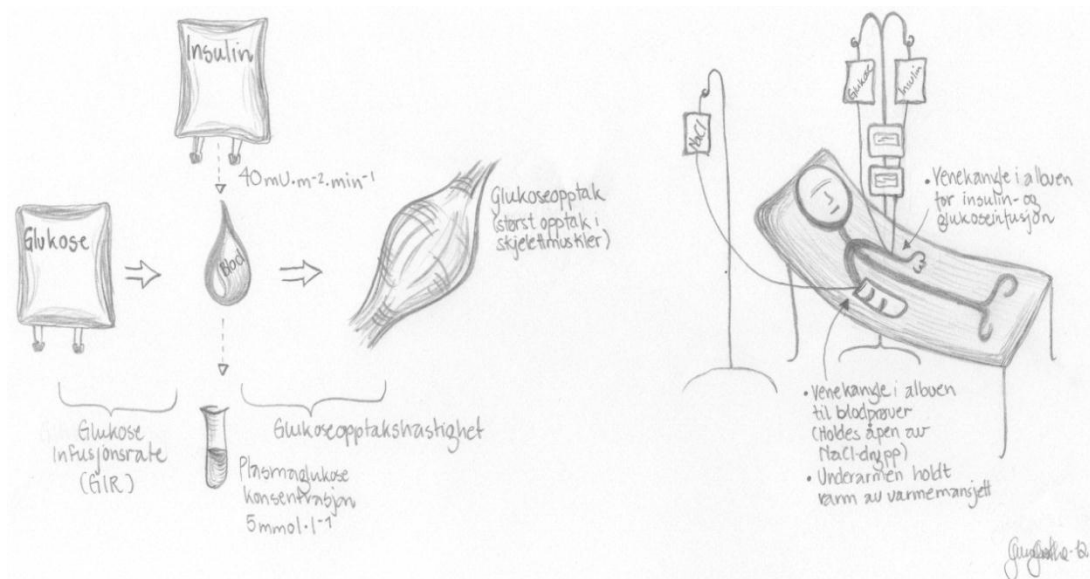 Insulin
40 mU·m⁻²·min⁻¹
Glukose
Blod
Glukoseopptak
(størst opptak i
skjelettmuskler)
Glukose
Infusjonsrate
(GIR)
Glukoseopptakshastighet
Plasmaglukose
konsentrasjon
5 mmol·l⁻¹
NaCl
Glukose
Insulin
• Venekanyle i albuen
for insulin- og
glukoseinfusjon
• Venekanyle i albuen
til blodprøver
(Holdes åpen av
NaCl-drypp)
• Underarmen holdt
varm av varmemansjett